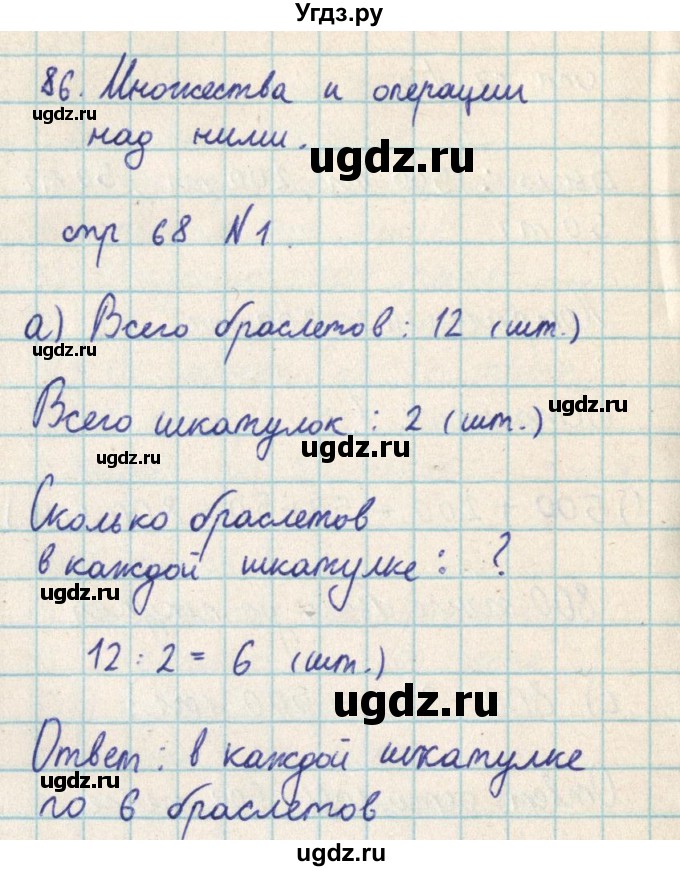 Угдз.ру
86. Множества и операции
ugdz.ru
над ними.
ugdz.ru
стр 68 № 1
а) Всего браслетов: 12 (шт.)
ugdz.ru
ugdz.ru
Всего шкатулок: 2 (шт.)
ugdz.ru
ugdz.ru
Сколько браслетов
в каждой шкатулке: ?
ugdz.ru
ugdz.ru
12 : 2 = 6 (шт.)
ugdz.ru
Ответ: в каждой шкатулке
ugdz.ru
по 6 браслетов
ugdz.ru
ugdz.ru